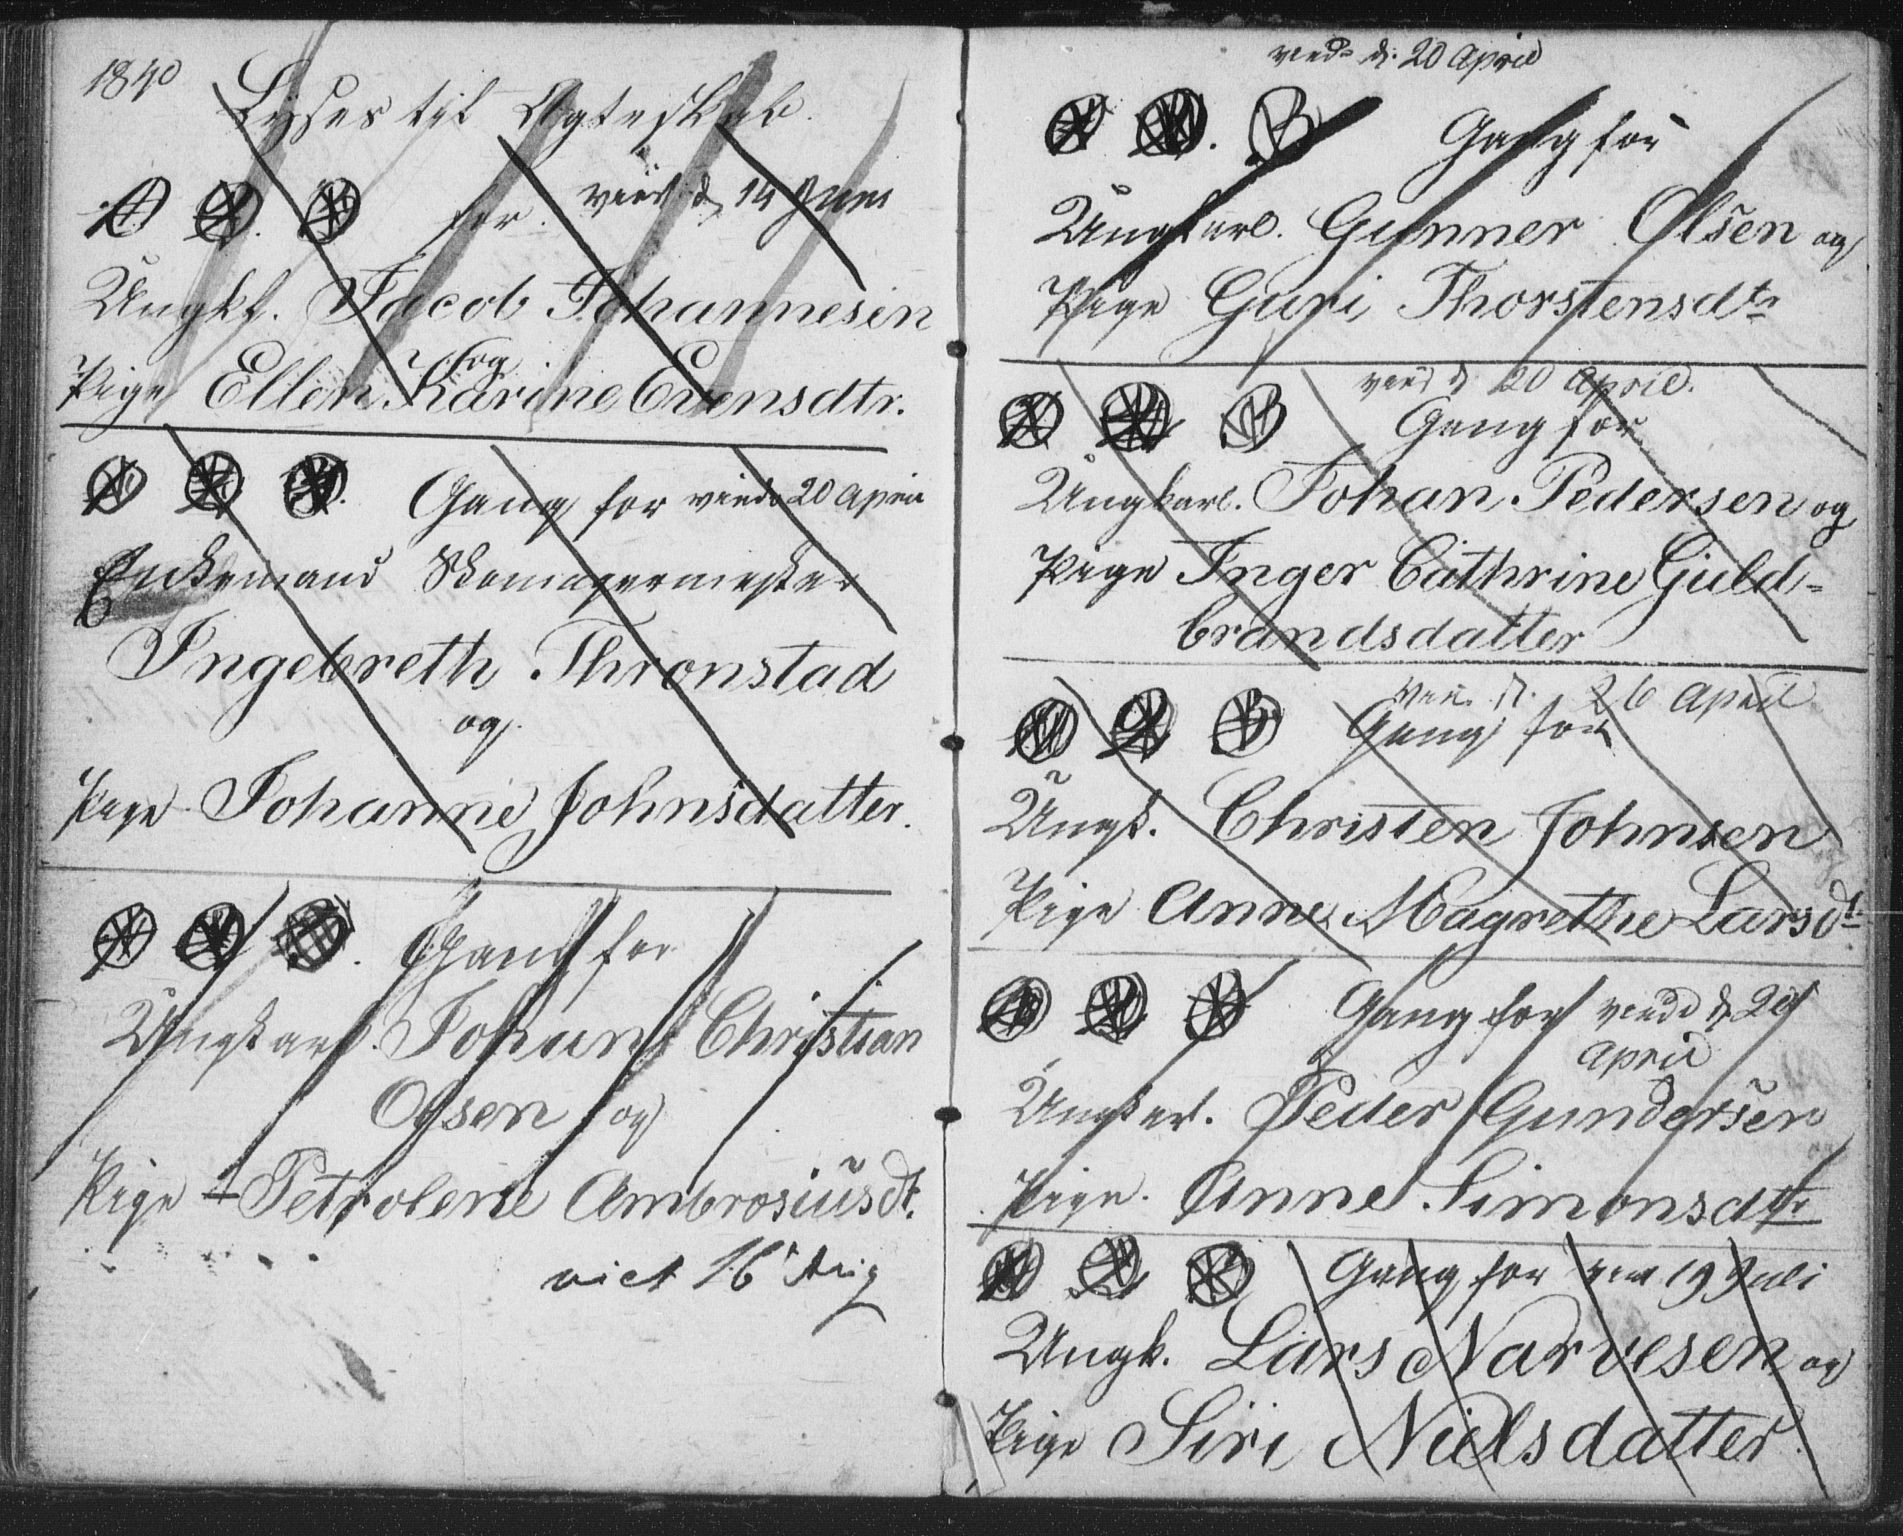 1840
Lyses til Ægteskab.
1. 2. 3. for. viet d 14 Juni
Ungk. Jacob Johannesen
og
Pige Ellen Karine Evensdtr.
1 2 3. Gang for viede 20 April
Enkemand Skomagermester
Ingebreth Thronstad
og
Pige Johanne Johnsdatter.
1 2 3. Gang for
Ungkarl. Johan Christian
Olsen og
Pige Petrolene Ambrosiusdt.
viet 16 Aug
viede d. 20 April
1 2. 3 Gang for
Ungkarl. Gunner Olsen og
Pige Guri Thorstensdtr
viede d 20 April.
1 2 3 Gang for
Ungkarl. Johan Pedersen og
Pige Inger Cathrine Guld-
brandsdatter
d. 26 April
1 2 3 Gang for
Ungk. Christen Johnsen
Pige Anne Magrethe Larsdt
1 2 3 Gang for viede d 20
April
Ungkarl. Peder Gundersen
Pige. Anne Simonsdtr
1 2 3 Gang for 19 Juli
Ungk. Lars Narvesen og
Pige Siri Nielsdatter.